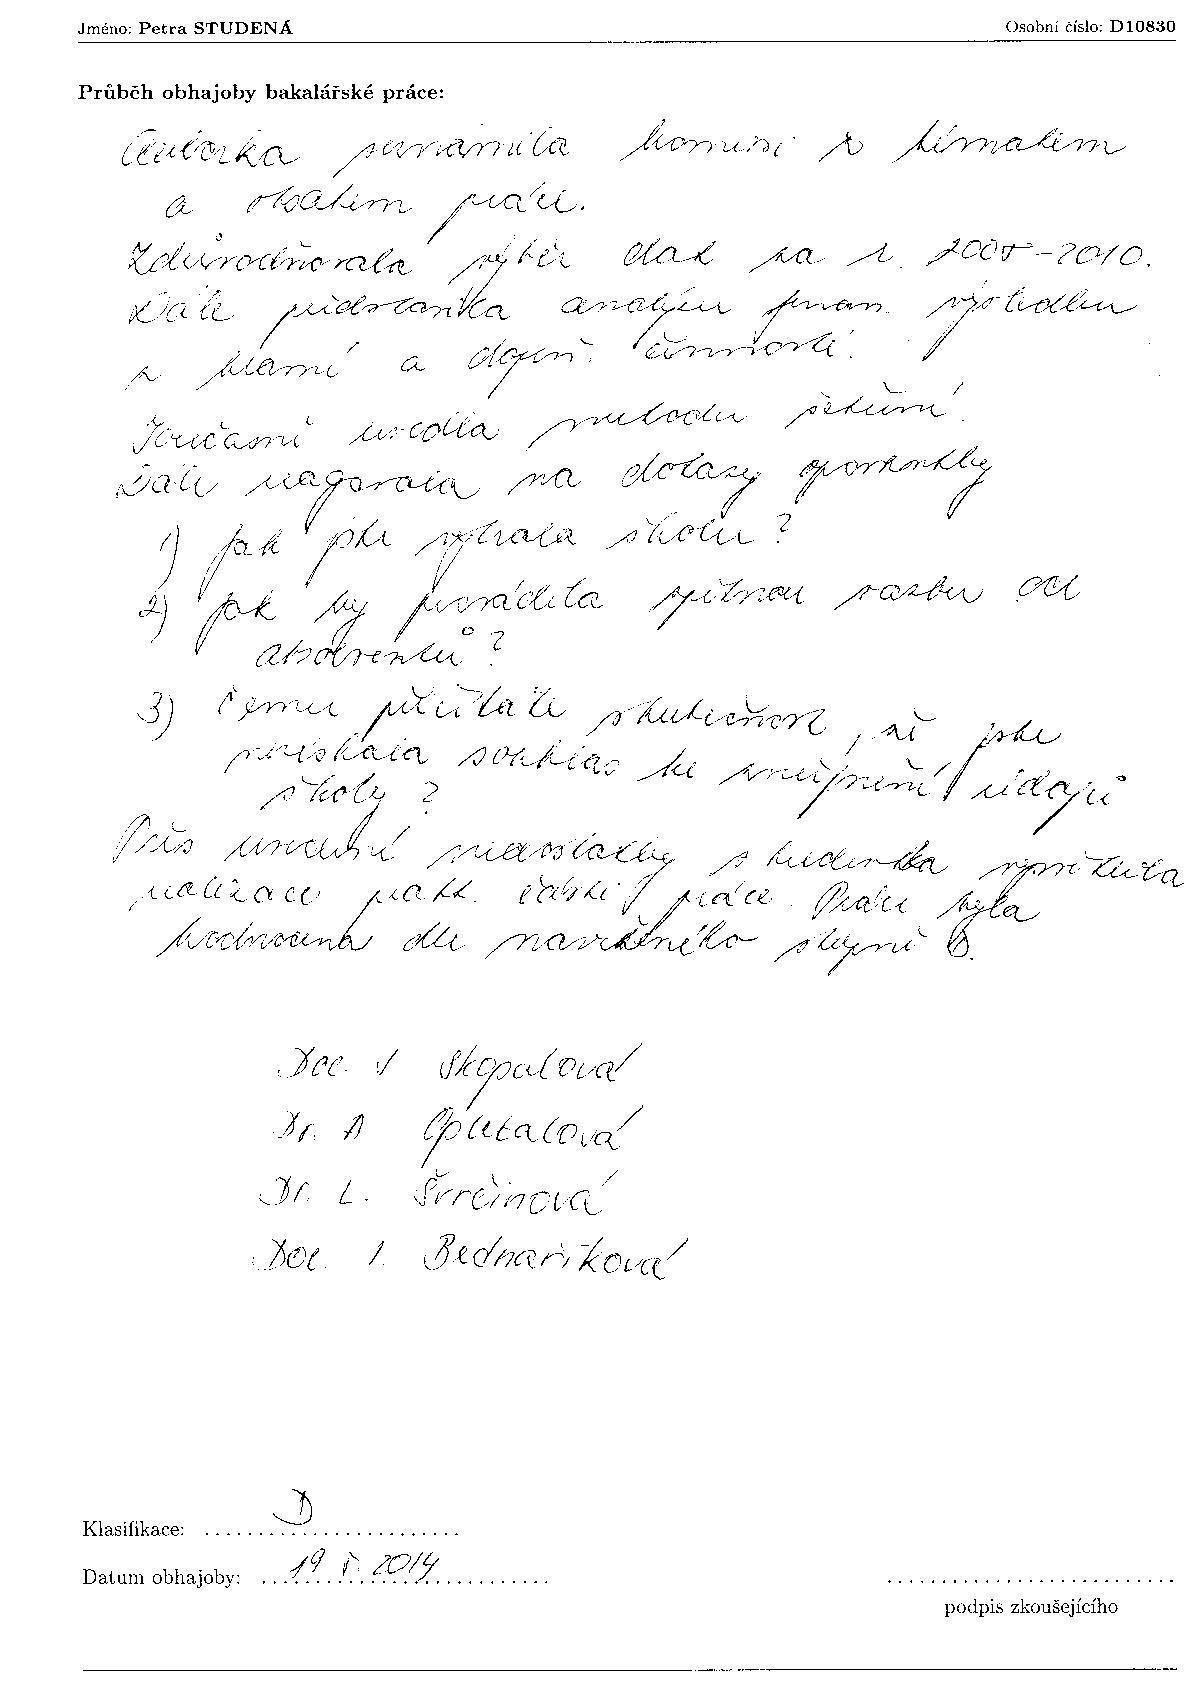 Jméno: Petra STUDENÁ Osobní číslo: D10830
Průběh obhajoby bakalářské práce:
Autorka seznámila komisi s tématem
a obsahem práce.
Zdůvodňovala výběr dat za r. 2005-2010.
Dále představila analýzu finan. výsledku
z hlavní a doplň. činnosti.
Současně uvedla metodu šetření.
Dále reagovala na dotazy oponentky
1) Jak jste vybrala školu?
2) Jak by prováděla zpětnou vazbu od
absolventů?
3) Čemu přičítáte skutečnost, že jste
nezískala souhlas ke zveřejnění údajů
školy?
Přes uvedené nedostatky studentka
realizace prakt. části práce. Práce byla
hodnocena dle navrženého stupně D.
Doc. J. Skopalová
Dr. A. Oplatalová
Dr. L. Švrčinová
Doc. I. Bednaříková
Klasifikace: D
Datum obhajoby: 19. 5. 2014
podpis zkoušejícího